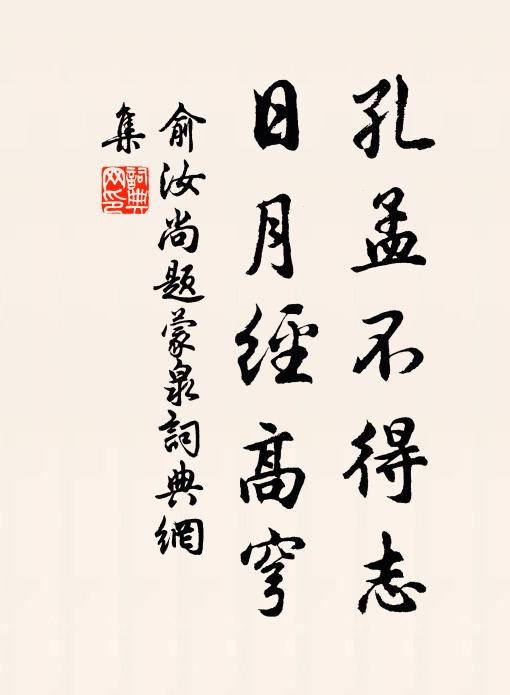 孔孟不得志
日月經高穹
俞汝尚題蒙泉詞典網
集
詞典網印